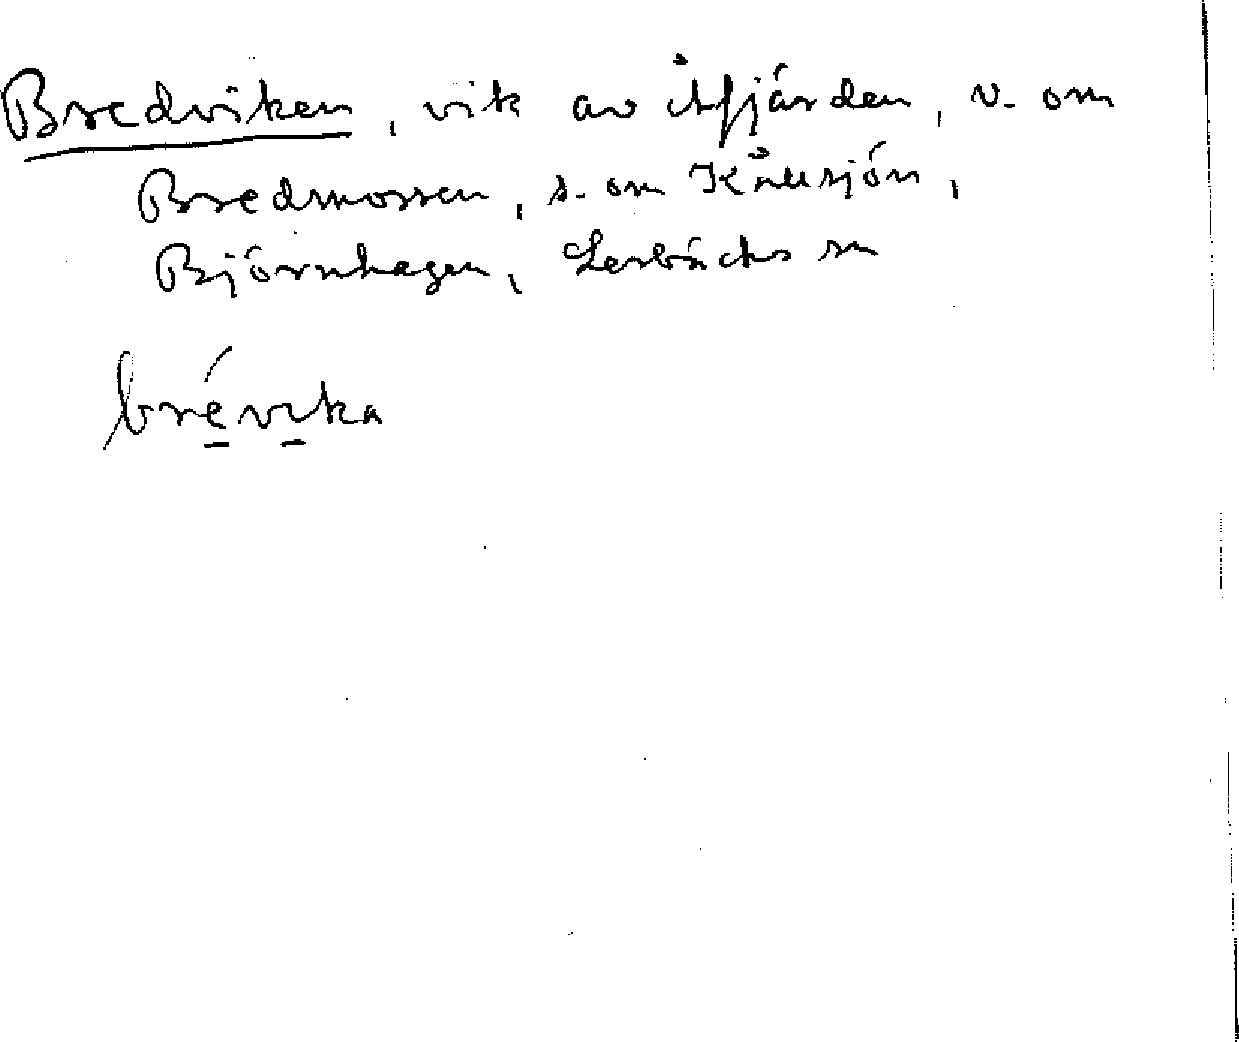 Bredviken, vik av Åfjärden, v. om
Bredmossen, s. om Kållsjön,
Björnhagen, Lerbäcks sn
brévika